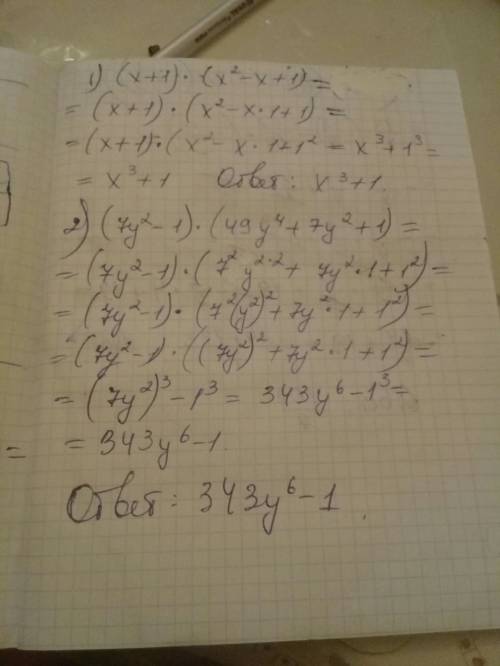 1) (x+1)·(x²-x+1)=
= (x+1)·(x²-x·1+1)=
=(x+1)·(x²-x·1+1² = x³+1³=
= x³+1 Ответ: x³+1.
2) (7y²-1)·(49y⁴+7y²+1)=
=(7y²-1)·(7²y²˙²+7y²·1+1²)=
=(7y²-1)·(7²(y²)²+7y²·1+1²)=
=(7y²-1)·((7y²)²+7y²·1+1²)=
=(7y²)³-1³= 343y⁶-1³=
= =343y⁶-1.
Ответ: 343y⁶-1.